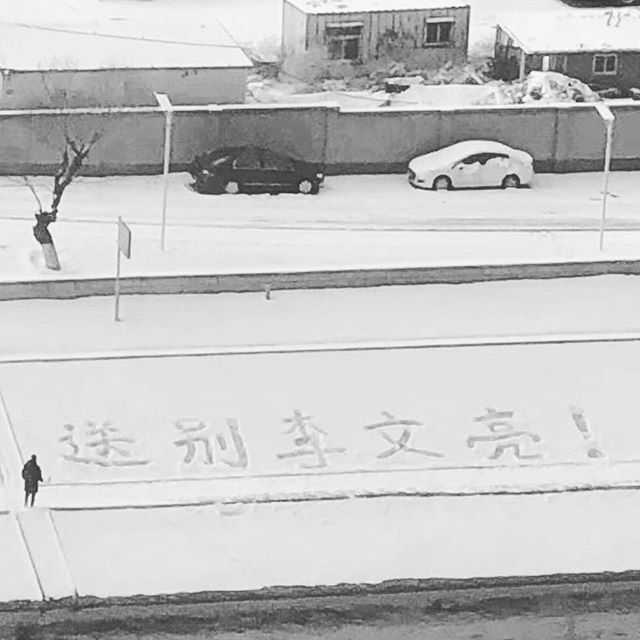 送别李文亮!